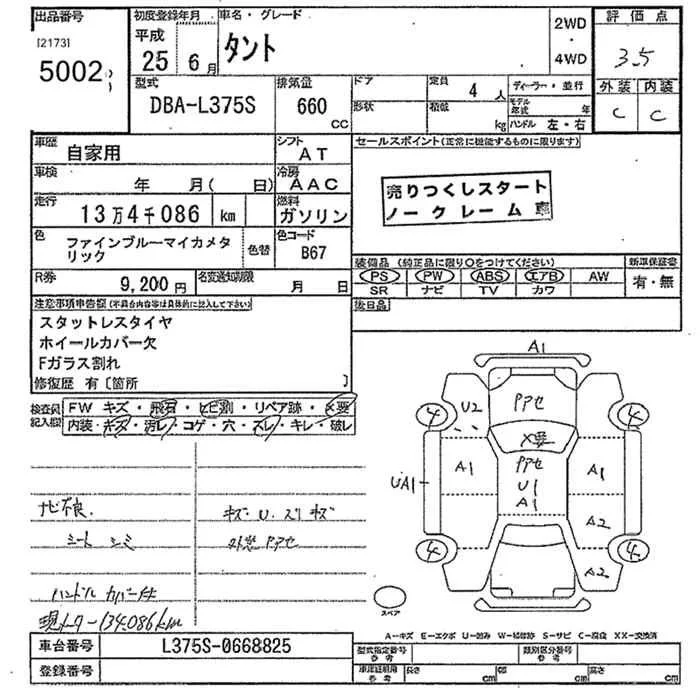 出品番号
[2173]
5002
初度登録年月
平成
25年 6月
車名・グレード
タント
2WD
・
4WD
評価点
3.5
外装 内装
C C
型式
DBA-L375S
排気量
660
CC
ドア
形状
定員 4人
積載 kg
ディーラー・並行
モデル年式 年
ハンドル 左・右
車歴
自家用
シフト
AT
車検
年 月( 日)
冷房
AAC
走行
13万4千086 km
燃料
ガソリン
色
ファインブルーマイカメタリック
色替
色コード
B67
R券
9,200円
名変通知期限
月 日
セールスポイント(正常に機能するものに限ります)
売りつくしスタート
ノークレーム車
装備品(純正品に限り○をつけてください)
PS PW ABS エアB AW
SR ナビ TV カワ
新車保証書
有・無
後日品
注意事項申告欄(不具合内容等は具体的に記入して下さい)
スタットレスタイヤ
ホイールカバー欠
Fガラス割れ
修復歴 有〔箇所 〕
検査員記入欄
FW キズ・飛石・ヒビ割・リペア跡・X要
内装・キズ・汚レ・コゲ・穴・スレ・キレ・破レ
ナビ不良
シート シミ
ハンドル カバー付
現メーター134,086km
キズ・U・スリキズ
外窓 PPセ
A1
4
U2
PPセ
4
X要
UA1
A1
PPセ
U1
A1
A1
A2
4
4
A2
スペア
A-キズ E-エクボ U-凹み W-補修跡 S-サビ C-腐食 XX-交換済
車台番号
L375S-0668825
登録番号
型式指定番号
参考
類別区分番号
参考
車庫証明用
参考
長さ cm
幅 cm
高さ cm